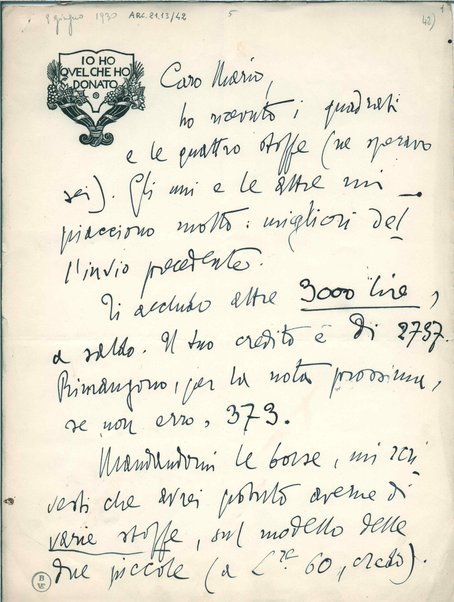 8 giugno 1930 ARC.21.13/42 5 42) 1
IO HO
QVEL CHE HO
DONATO
Caro Mario,
ho ricevuto i quadrati
e le quattro stoffe (ne speravo
sei). Gli uni e le altre mi
piacciono molto: migliori del
l'invio precedente.
Ti accludo altre 3000 lire,
a saldo. Il tuo credito è di 2737.
Rimangono, per la nota prossima,
se non erro, 373.
Mandandomi le borse, mi scri
vesti che avrei potuto averne di
varie stoffe, sul modello delle
due piccole (a L.re 60, credo).